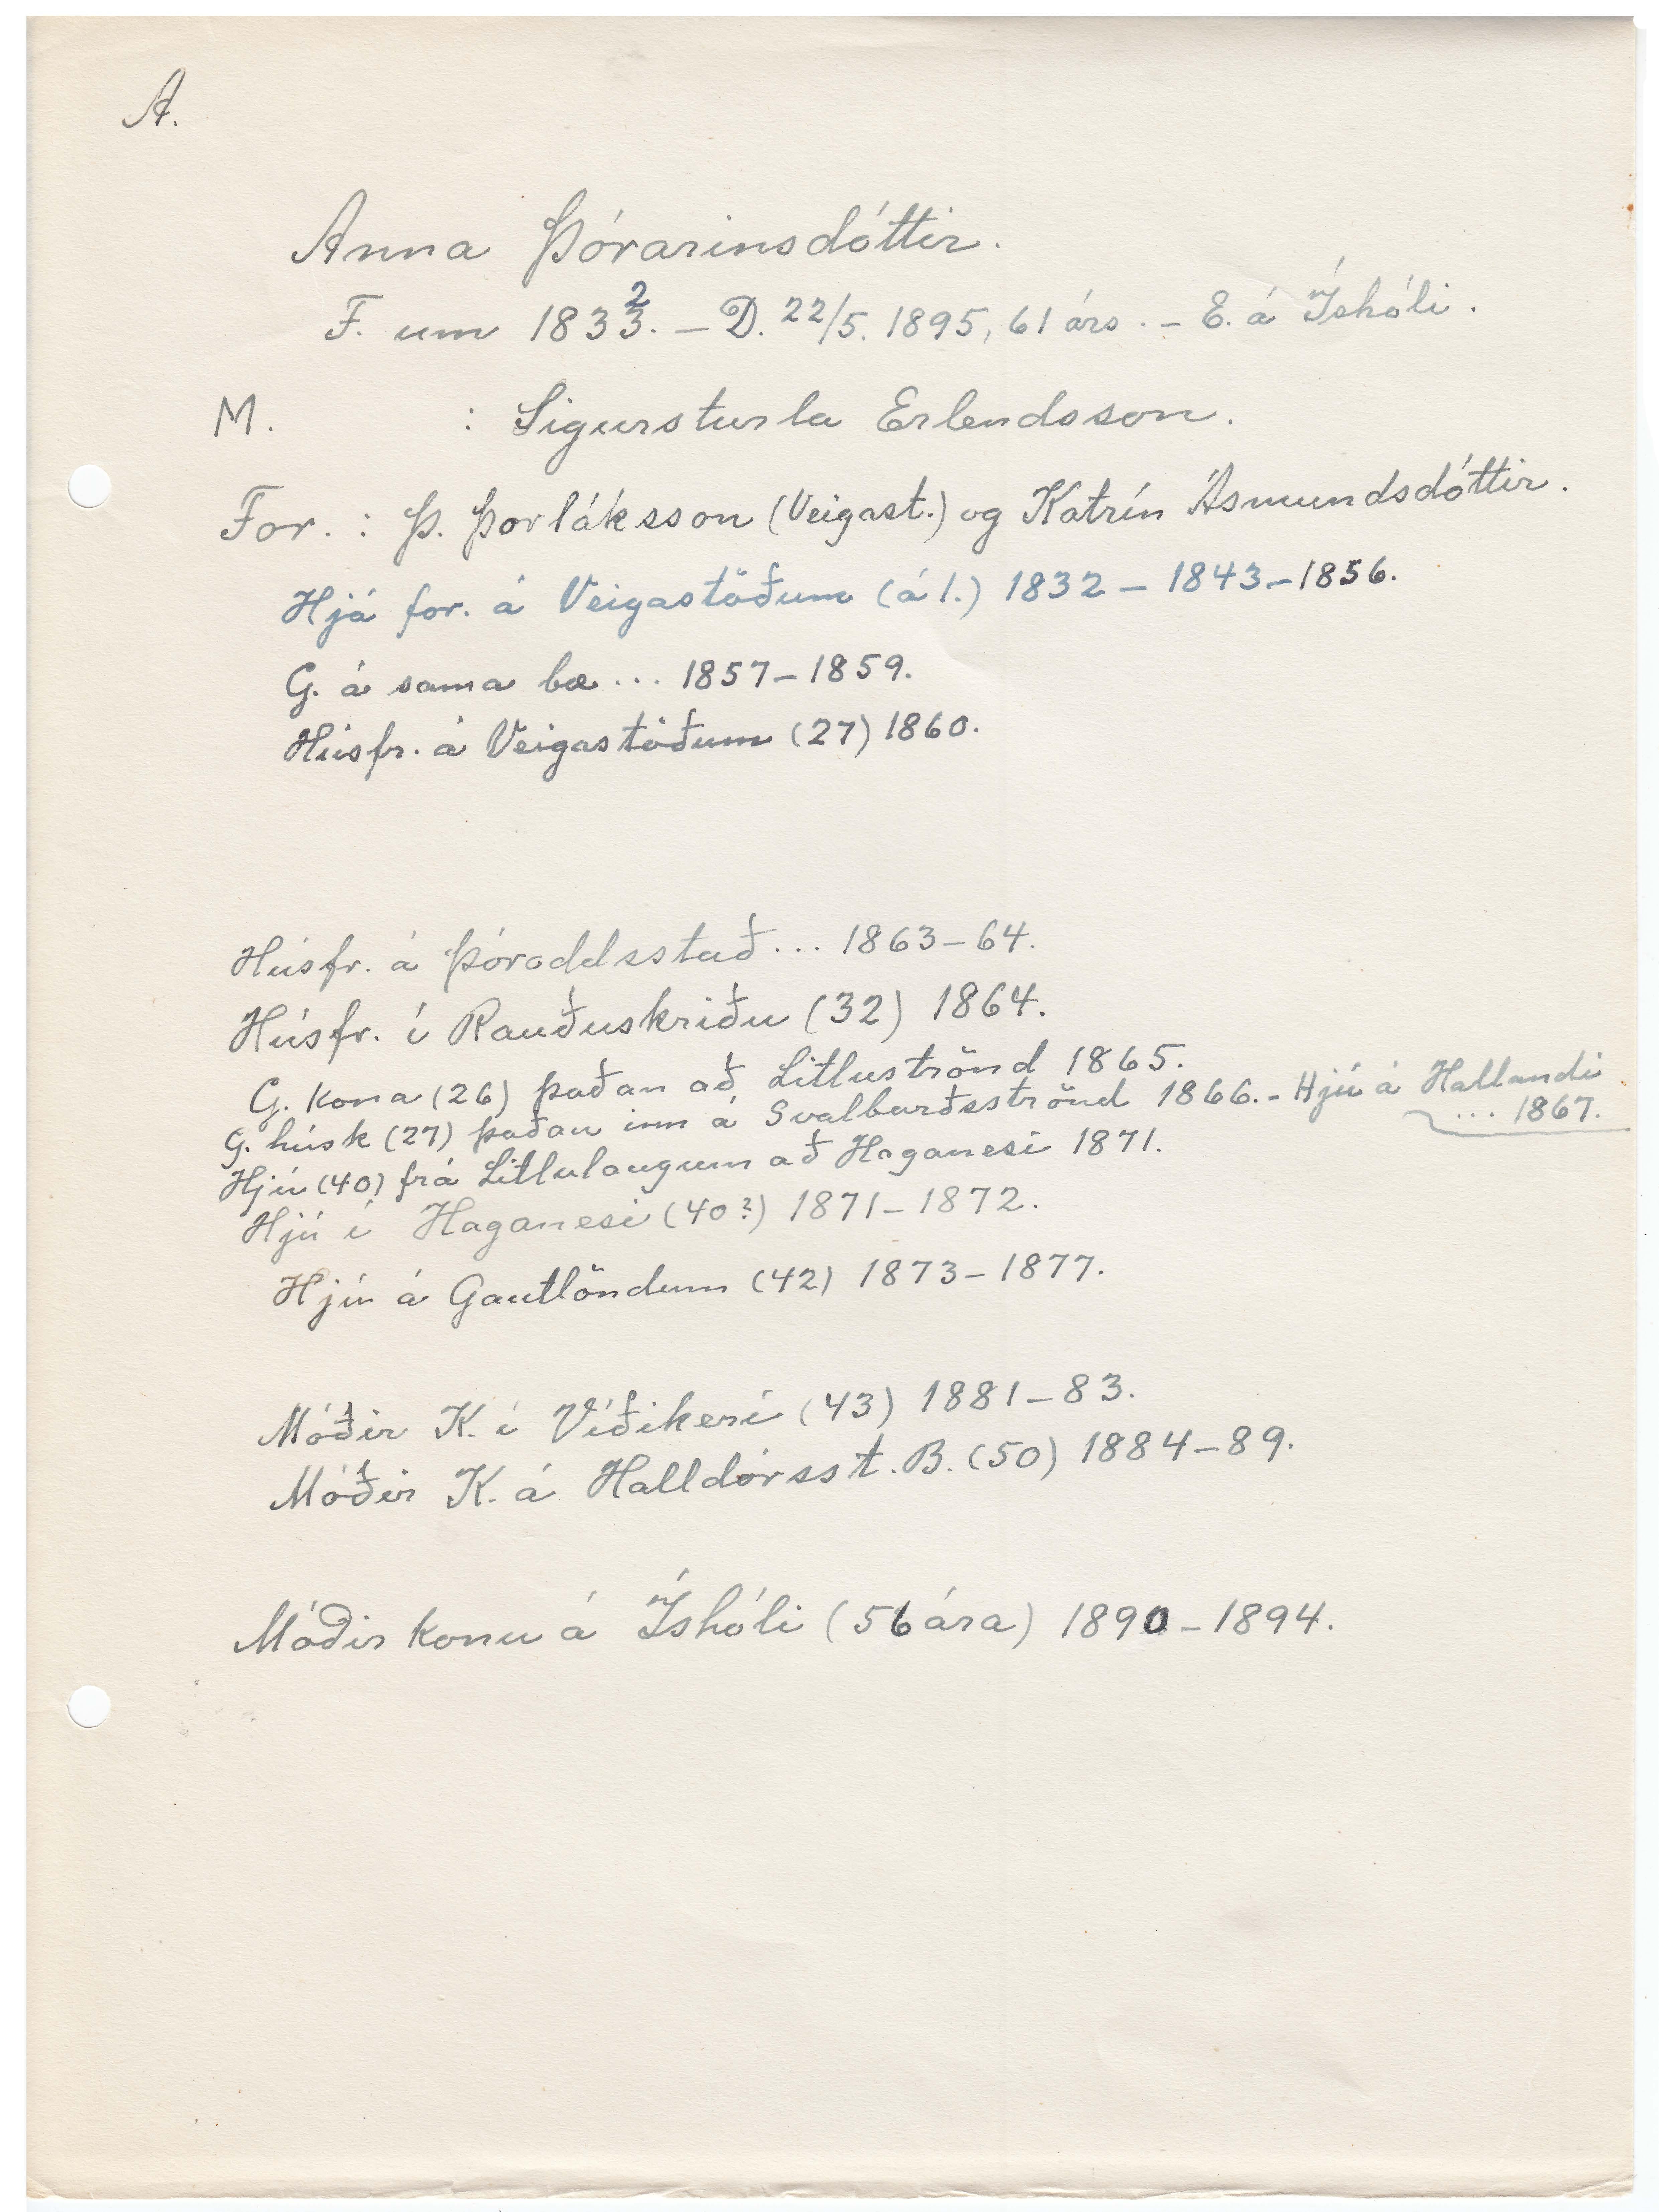 A.
Anna Þórarinsdóttir.
F. um 1833. 2 – D. 22/5. 1895, 61 árs. – E. á Íshóli.
M. : Sigursturla Erlendsson.
For. : Þ. Þorláksson (Veigast.) og Katrín Ásmundsdóttir.
Hjá for. á Veigastöðum (á 1.) 1832 – 1843 – 1856.
G. á sama bæ ... 1857 – 1859.
Húsfr. á Veigastöðum (27) 1860.
Húsfr. á Þóroddsstað ... 1863 – 64.
Húsfr. í Rauðuskriðu (32) 1864.
G. kona (26) þaðan að Litluströnd 1865.
G. húsk (27) þaðan inn á Svalbarðsströnd 1866. – Hjú á Hallandi
... 1867.
Hjú (40) frá Litlulaugum að Haganesi 1871.
Hjú í Haganesi (40?) 1871 – 1872.
Hjú á Gautlöndum (42) 1873 – 1877.
Móðir K. í Víðikeri (43) 1881 – 83.
Móðir K. á Halldórsst. B. (50) 1884 – 89.
Móðir konu á Íshóli (56 ára) 1890 – 1894.